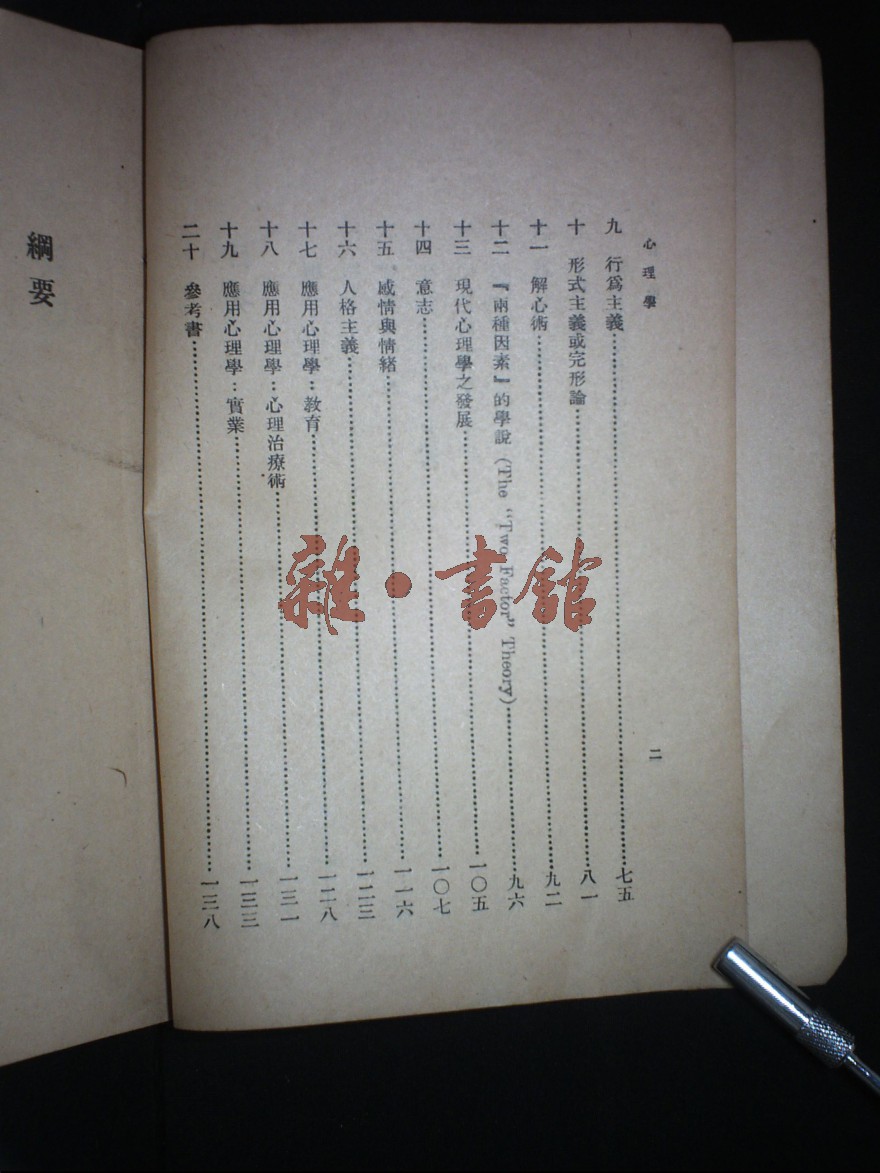 心理學
二
九 行爲主義……七五
十 形式主義或完形論……八一
十一 解心術……九二
十二 『兩種因素』的學說 (The “Two Factor” Theory)……九六
十三 現代心理學之發展……一〇五
十四 意志……一〇七
十五 感情與情緒……一一六
十六 人格主義……一二三
十七 應用心理學：教育……一二八
十八 應用心理學：心理治療術……一三一
十九 應用心理學：實業……一三三
二十 參考書……一三八
綱要
雜・書館